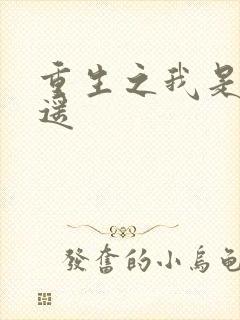 重生之我是
遥
發奮的小烏龜